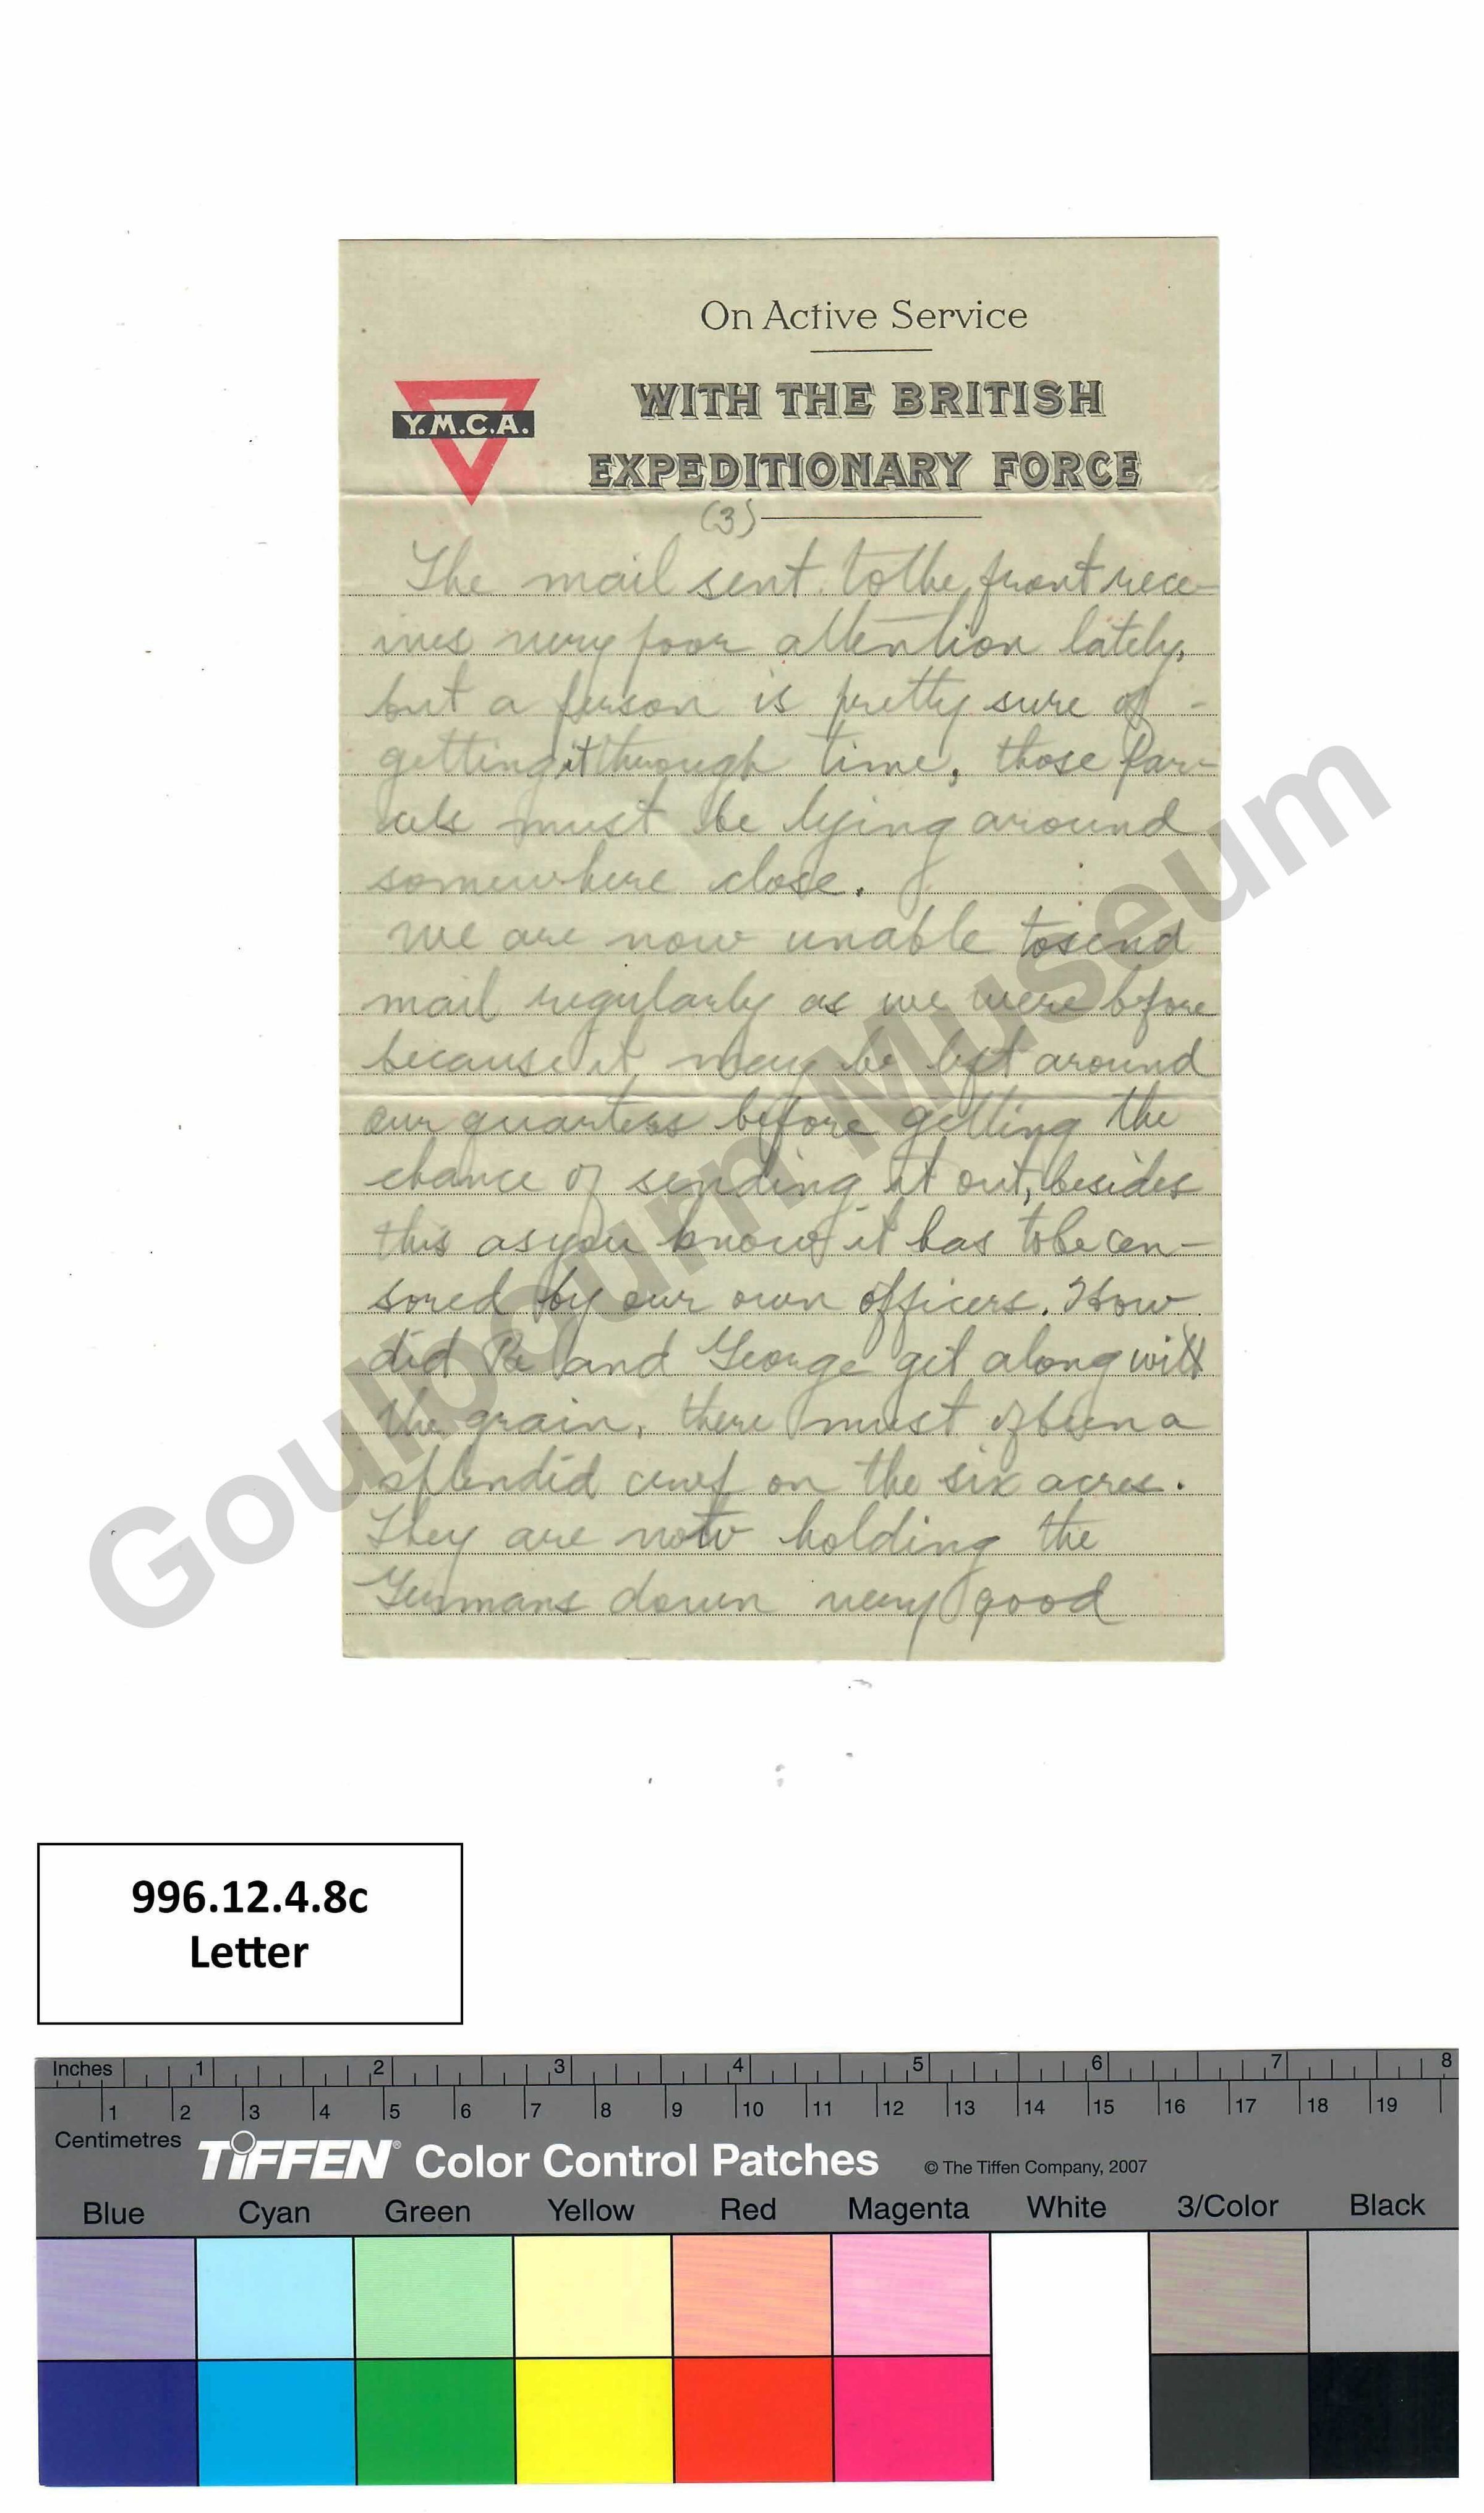 On Active Service
WITH THE BRITISH
EXPEDITIONARY FORCE
Y.M.C.A.
(3)
The mail sent to the front rece-
ives very poor attention lately,
but a person is pretty sure of -
getting it through time, those par-
cels must be lying around
somewhere close.
We are now unable to send
mail regularly as we were before
because it may be left around
our quarters before getting the
chance of sending it out, besides
this as you know it has to be cen-
sored by our own officers. How
did Pa and George get along with
the grain, there must of been a
splendid crop on the six acres.
They are now holding the
Germans down very good
Goulbourn Museum
996.12.4.8c
Letter
Inches 1 2 3 4 5 6 7 8
1 2 3 4 5 6 7 8 9 10 11 12 13 14 15 16 17 18 19
Centimetres
TIFFEN® Color Control Patches © The Tiffen Company, 2007
Blue Cyan Green Yellow Red Magenta White 3/Color Black